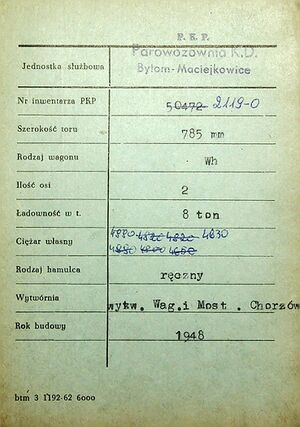 P. K. P.
Parowozownia K.D.
Jednostka służbowa Bytom-Maciejkowice
Nr inwentarza PKP 50472 2119-0
Szerokość toru 785 mm
Rodzaj wagonu Wh
Ilość osi 2
Ładowność w t. 8 ton
4880 4820 4820 4630
Ciężar własny 4880 4800 4650
Rodzaj hamulca ręczny
Wytwórnia wytw. Wag.i Most . Chorzów
Rok budowy 1948
btm 3 1192-62 6000